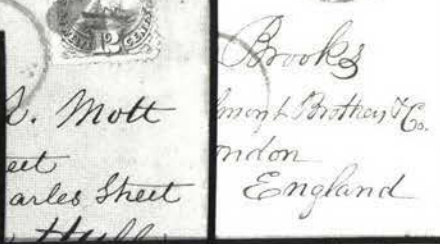 12
CENTS
. Mott
eet
arles Street
Hull
Brooks
Brothers & Co.
ondon
England